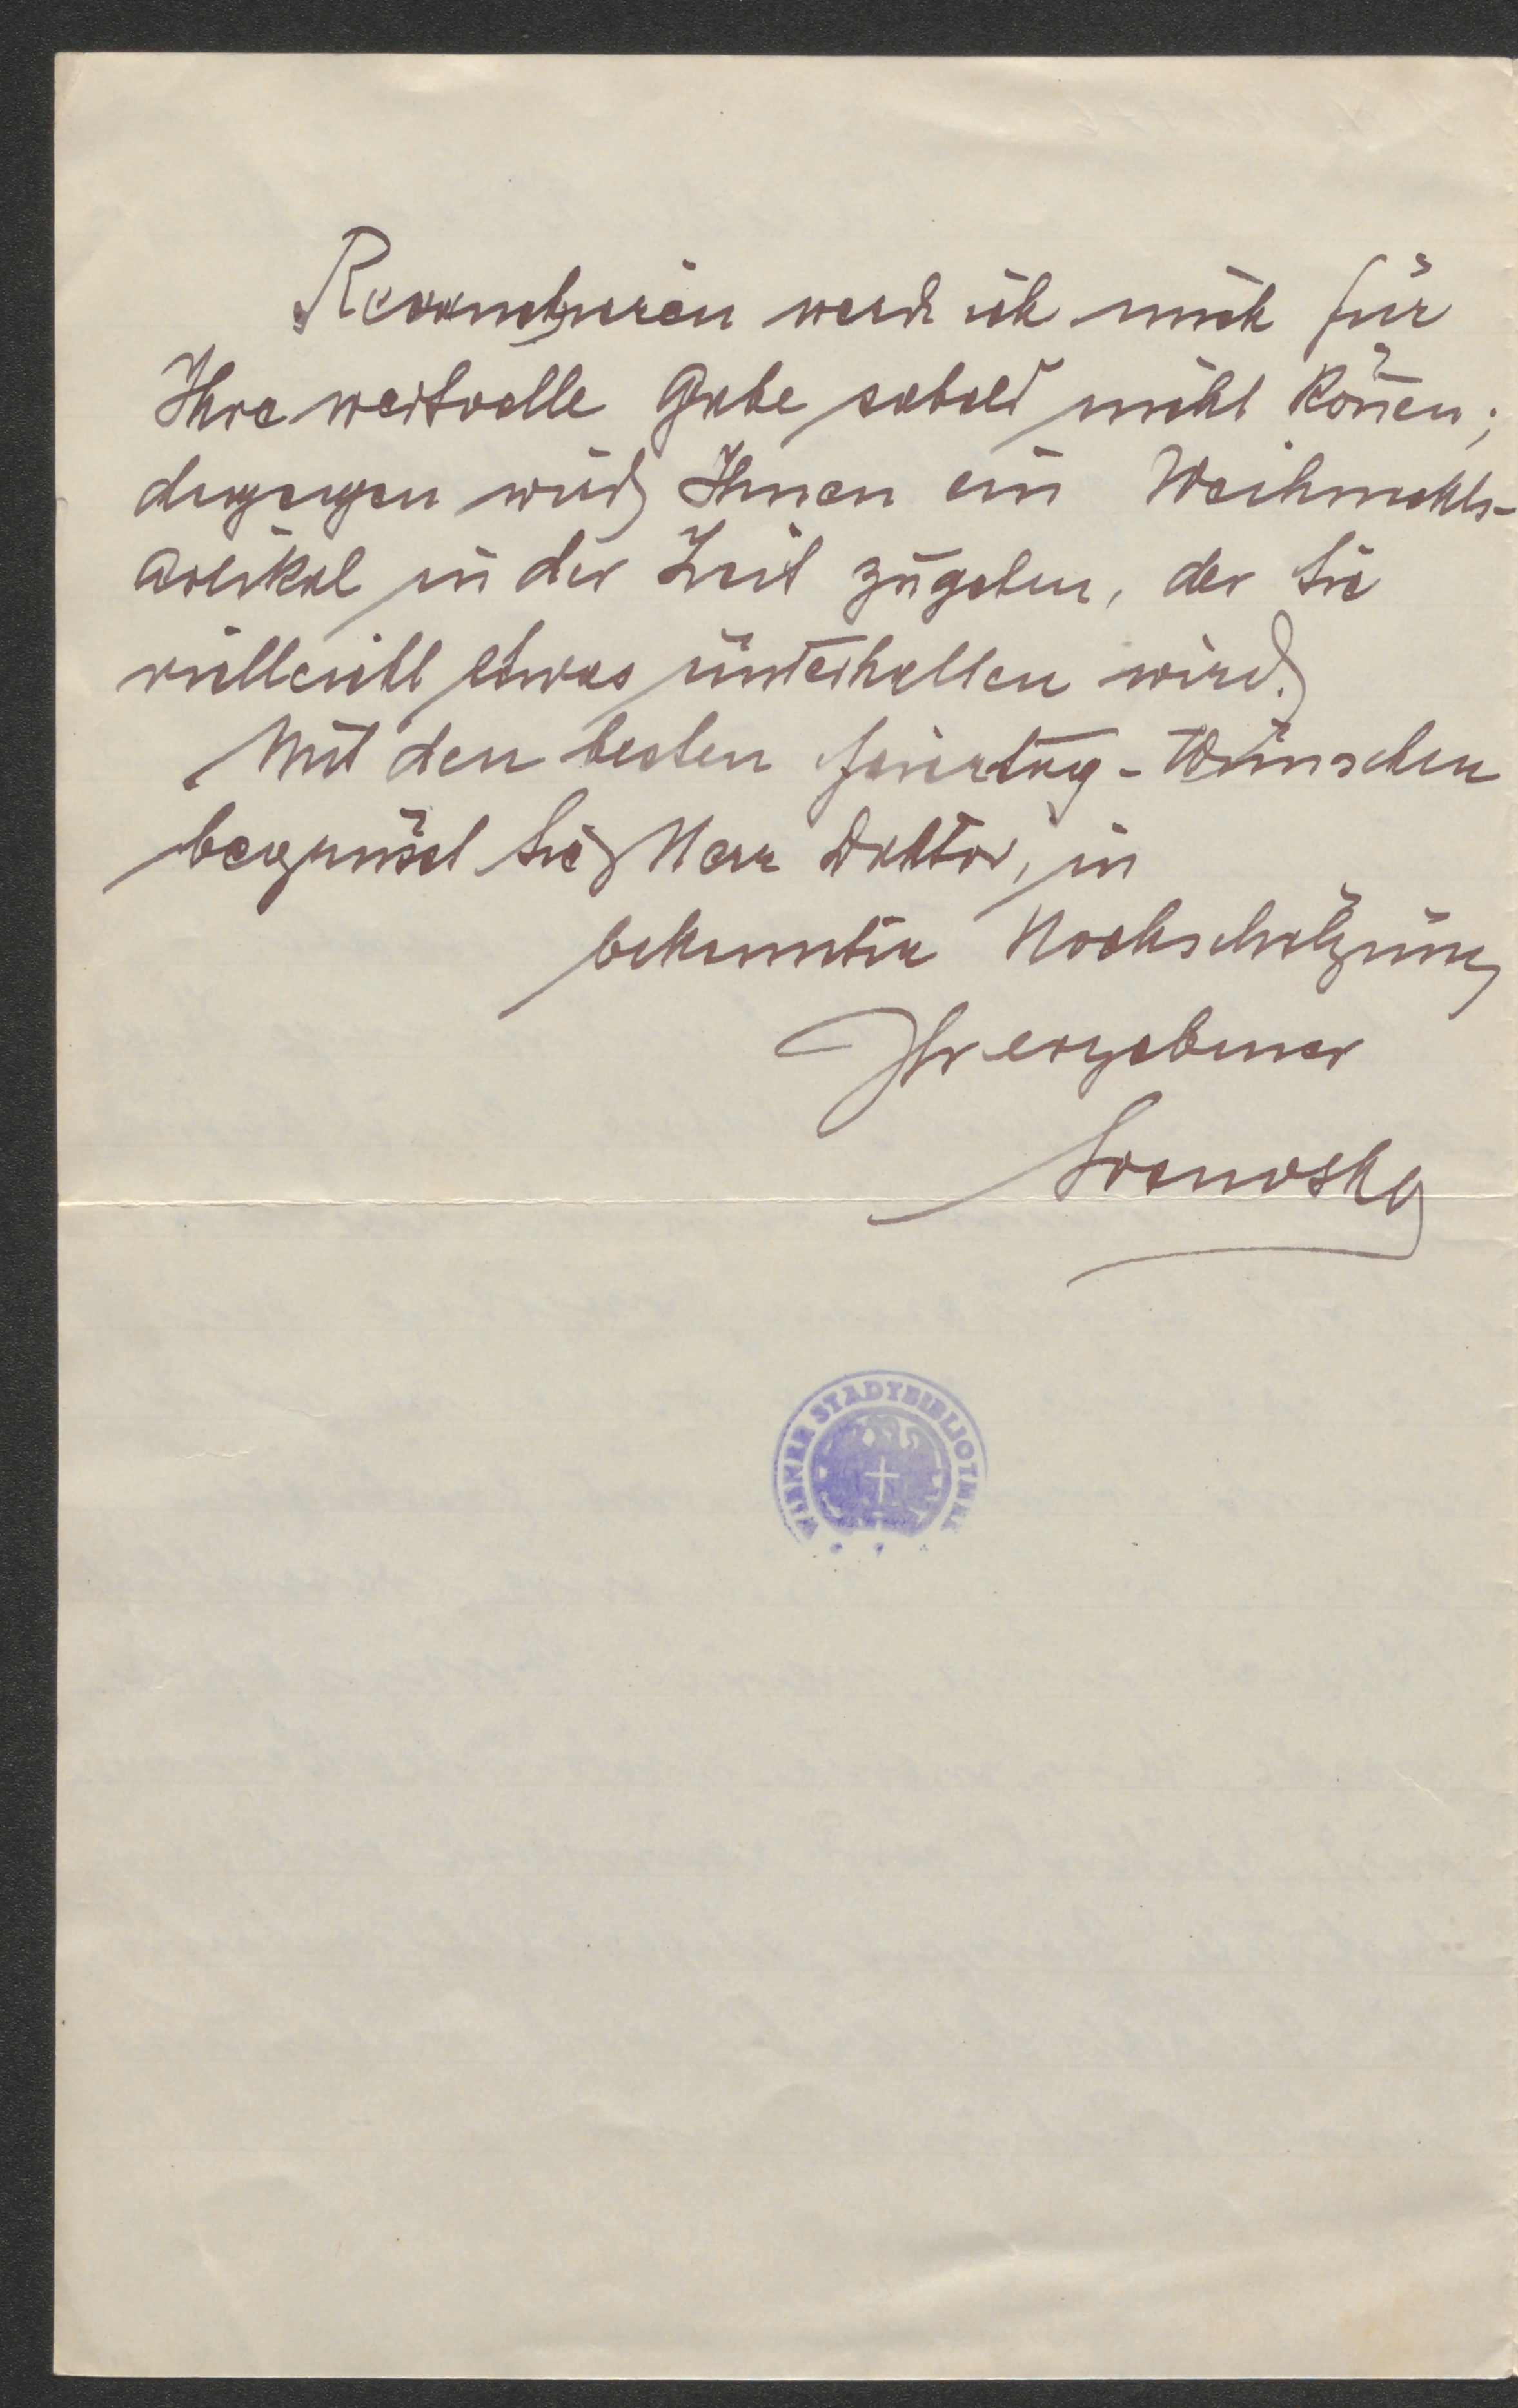 Revanchieren werde ich mich für
Ihre wertvolle Gabe sobald nicht können;
dagegen wird Ihnen ein Weihnachts-
artikel in der Zeit zugehen, der Sie
vielleicht etwas unterhalten wird.
Mit den besten Feiertag-Wünschen
begrüßt Sie, Herr Doktor, in
bekannter Hochschätzung
Ihr ergebener
WIENER STADTBIBLIOTHEK